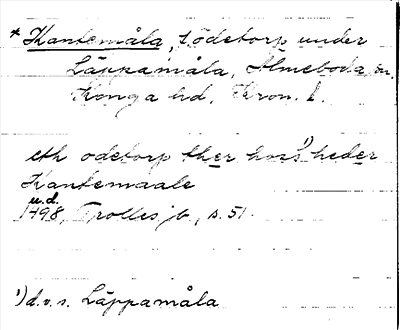 * Kantemåla, †ödetorp under
Läppamåla, Almeboda sn.
Konga hd, Kron. l.
eth odetorp ther hoss¹) heder
Kantemaale
u.d.
1498, Trolles jb, s. 51.
¹) d.v.s. Läppamåla